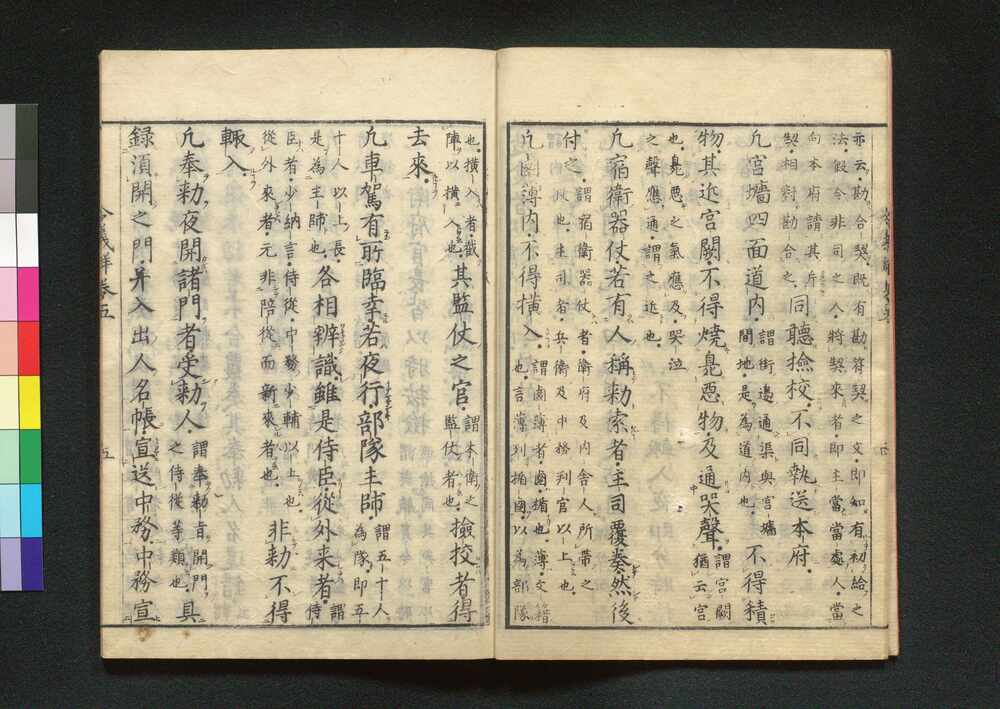 亦云勘合契既有勘符契之文即知有初給之
法假令非司之人將契來者即主當當處人當
向本府請其
契相對勘合之同聽撿校不同執送本府
凢宮墻四面道内謂街邊通渠與宮墻
間地是為道内也不得積
物其近宮闕不得燒臰悪物及通哭聲謂宮闕
猶云宮
也臰悪之氣應及哭泣
之聲應通謂之近也
凢宿衛器仗若有人稱勅索者主司覆奏然後
付之謂宿衛器仗者衛府及内舎人所帶之
仗也主司者兵衛及中務判官以上也
凢鹵簿内不得横入謂鹵簿者鹵楯也簿文籍
也言簿列楯鹵以為部隊
也横入者截
陣以横入也其監仗之官謂本衛之
監仗者也撿校者得
去來
凢車駕有所臨幸若夜行部隊主師謂五十人
為隊即五
十人以上長
是為主師也各相辨識雖是侍臣從外来者謂
侍
臣者少納言侍從中務少輔以上也
從外來者元非陪從而新來者也非勅不得
輙入
凢奉勅夜開諸門者受勅人謂奉勅宣開門
之侍從等類也具
録湏開之門并入出人名帳宣送中務中務宣